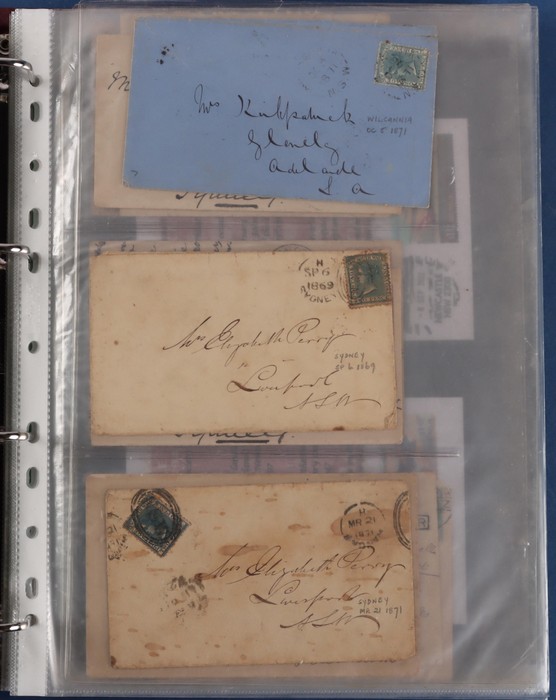 Mrs Kirkpatrick
Glenelg
Adelaide
S A
WILCANNIA
OC 5 1871
Sydney.
H
SP 6
1869
Mrs Elizabeth Perry
Liverpool
N S W
SYDNEY
SP 6 1869
Sydney.
H
MR 21
1871
Mrs Elizabeth Perry
Liverpool
N S W
SYDNEY
MR 21 1871